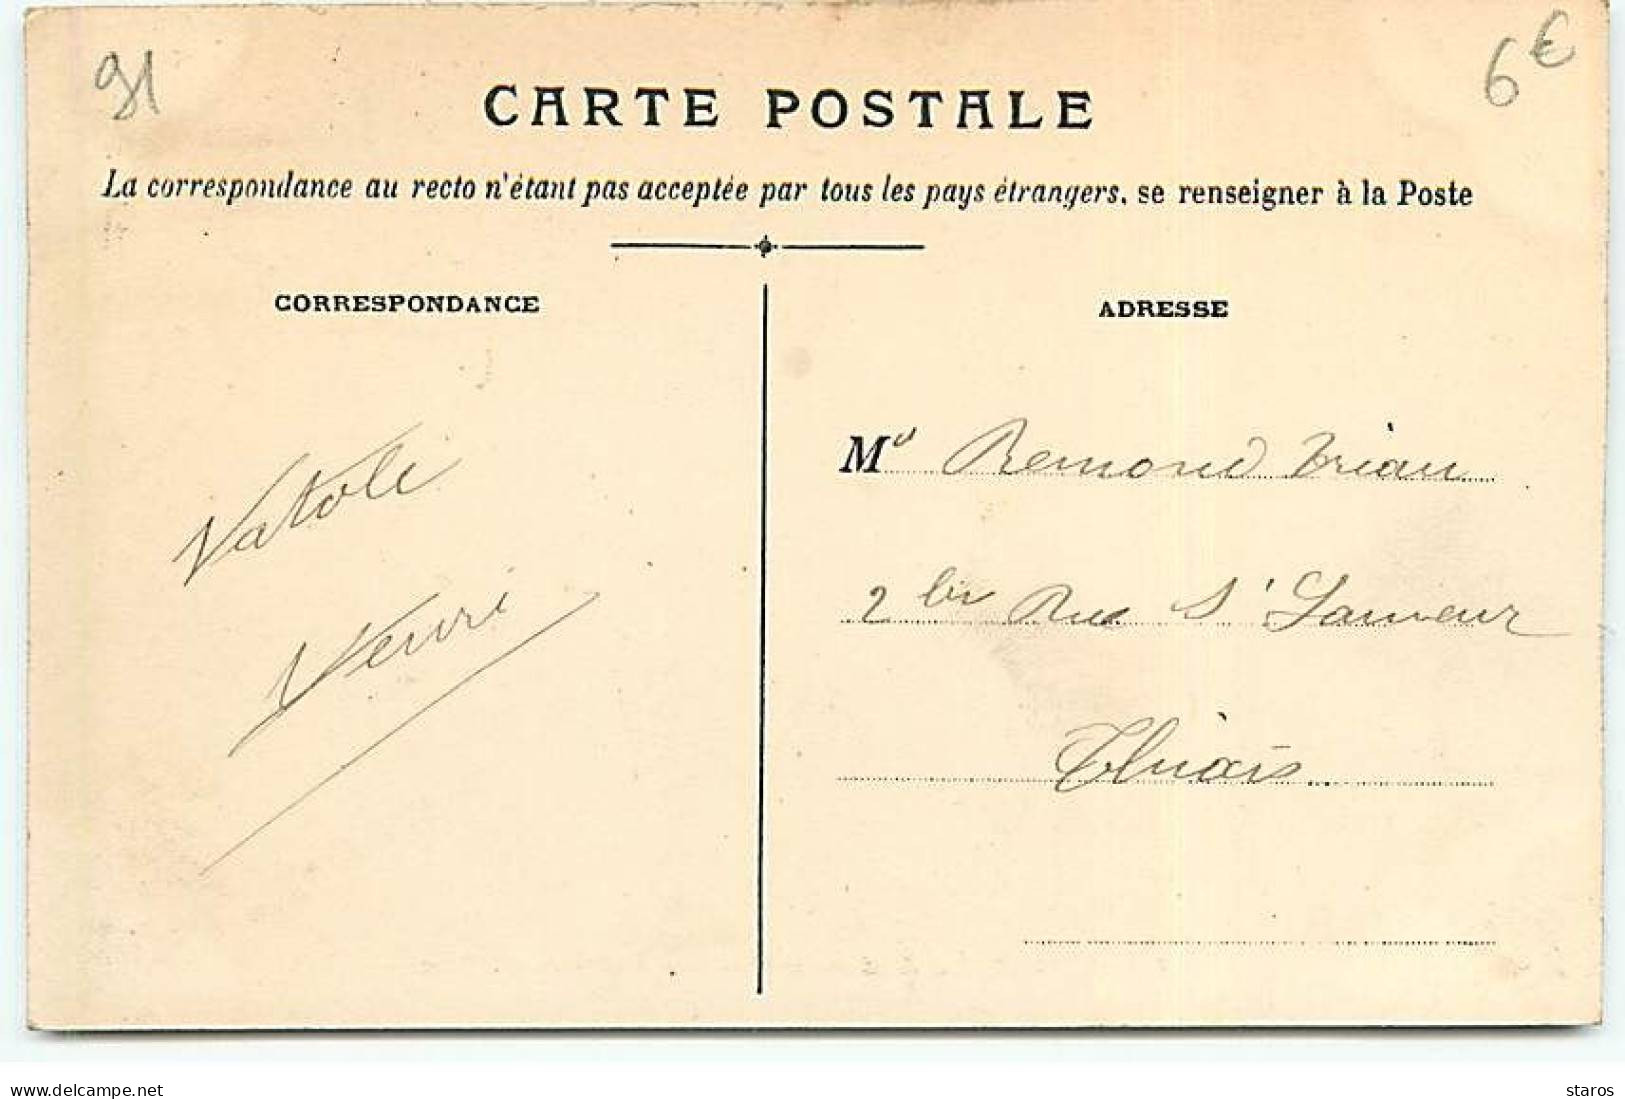 91
6€
CARTE POSTALE
La correspondance au recto n'étant pas acceptée par tous les pays étrangers, se renseigner à la Poste
CORRESPONDANCE
ADRESSE
Natole
Henri
Mr Remond Brian
2 bis Rue St Sauveur
Thiais
www.delcampe.net
staros